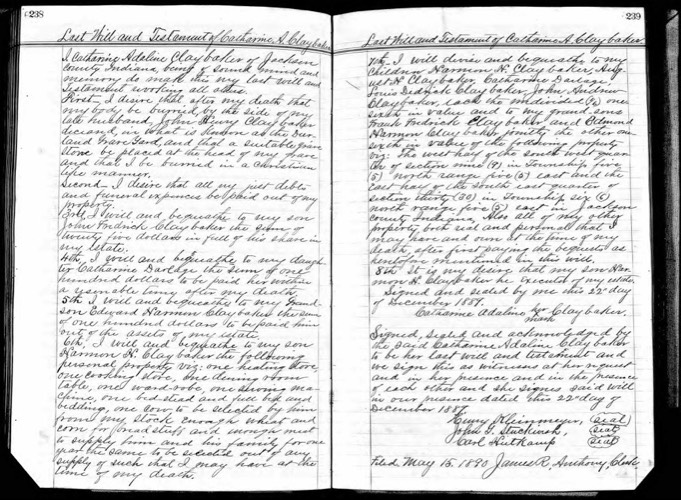 238
Last Will and Testament of Catharine A. Claybaker
I Catharine Adaline Claybaker of Jackson
County Indiana, being of sound mind and
memory do make this my last will and
Testament revoking all others.
First - I desire that after my death that
my body be burried by the side of my
late husband, John Henry Claybaker
deceased, in what is known as the Dur-
land Grave Yard, and that a suitable grave
stone be placed at the head of my grave
and that I be burried in a Christian
like manner.
Second - I desire that all my just debts
and funeral expences be paid out of my
property.
3rd, I will and bequeathe to my son
John Fredrick Claybaker the sum of
twenty five dollars in full of his share in
my estate.
4th, I will and bequeathe to my daugh-
ter Catharine Darlage the sum of one
hundred dollars to be paid her within
a reasonable time after my death.
5th I will and bequeathe to my Grand
son Edward Harmon Claybaker the sum
of one hundred dollars to be paid him
out of the assets of my estate.
6th, I will and bequeathe to my son
Harmon H. Claybaker the following
personal property viz: one heating stove,
one cooking stove, one dining room
table, one wardrobe, one sewing ma-
chine, one bed-stead and full bed and
bedding, one cow to be selected by him
from my stock enough wheat and
corn for bread stuff and enough meat
to supply him and his family for one
year the same to be selected out of any
supply of such that I may have at the
time of my death.
239
Last Will and Testament of Catharine A. Claybaker.
7th, I will devise and bequeathe to my
Children Harmon H. Claybaker, Aug-
ust H. Claybaker, Catharine Darlage
Louis Dedrick Claybaker, John Andrew
Claybaker, each the undivided one
sixth in value and to my grand sons
Frank Fredrick Claybaker and Edmond
Harmon Claybaker jointly the other one
sixth in value of the following property
viz: The west half of the south west quar-
ter of section nine (9) in Township five
(5) north range five (5) east and the
east half of the South east quarter of
section thirty (30) in Township six (6)
north range five (5) east in Jackson
County Indiana, Also all of my other
property both real and personal that I
may have and own at the time of my
death, after first paying the bequests as
heretofore mentioned in this will.
8th It is my desire that my son Har-
mon H. Claybaker be Executor of my estate.
Signed and sealed by me this 22nd day
of December 1887.
Catharine Adaline her mark Claybaker.
Signed, Sealed and acknowledged by
the said Catharine Adaline Claybaker
to be her last will and testament and
we sign this as witnesses at her request
and in her presence and in the presence
of each other and she signed said will
in our presence dated this 22nd day of
December 1887.
Henry Kleinmeyer, (seal)
John F. (seal)
Carl (seal)
Filed May 15, 1890 James R. Anthony, Clerk